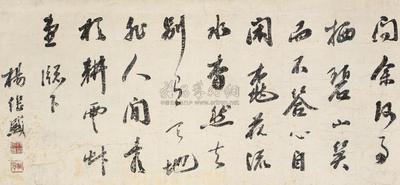 問余何事
栖碧山笑
而不答心自
閑桃花流
水杳然去
別有天地
非人間書
於耕雲艸
下
楊繼盛